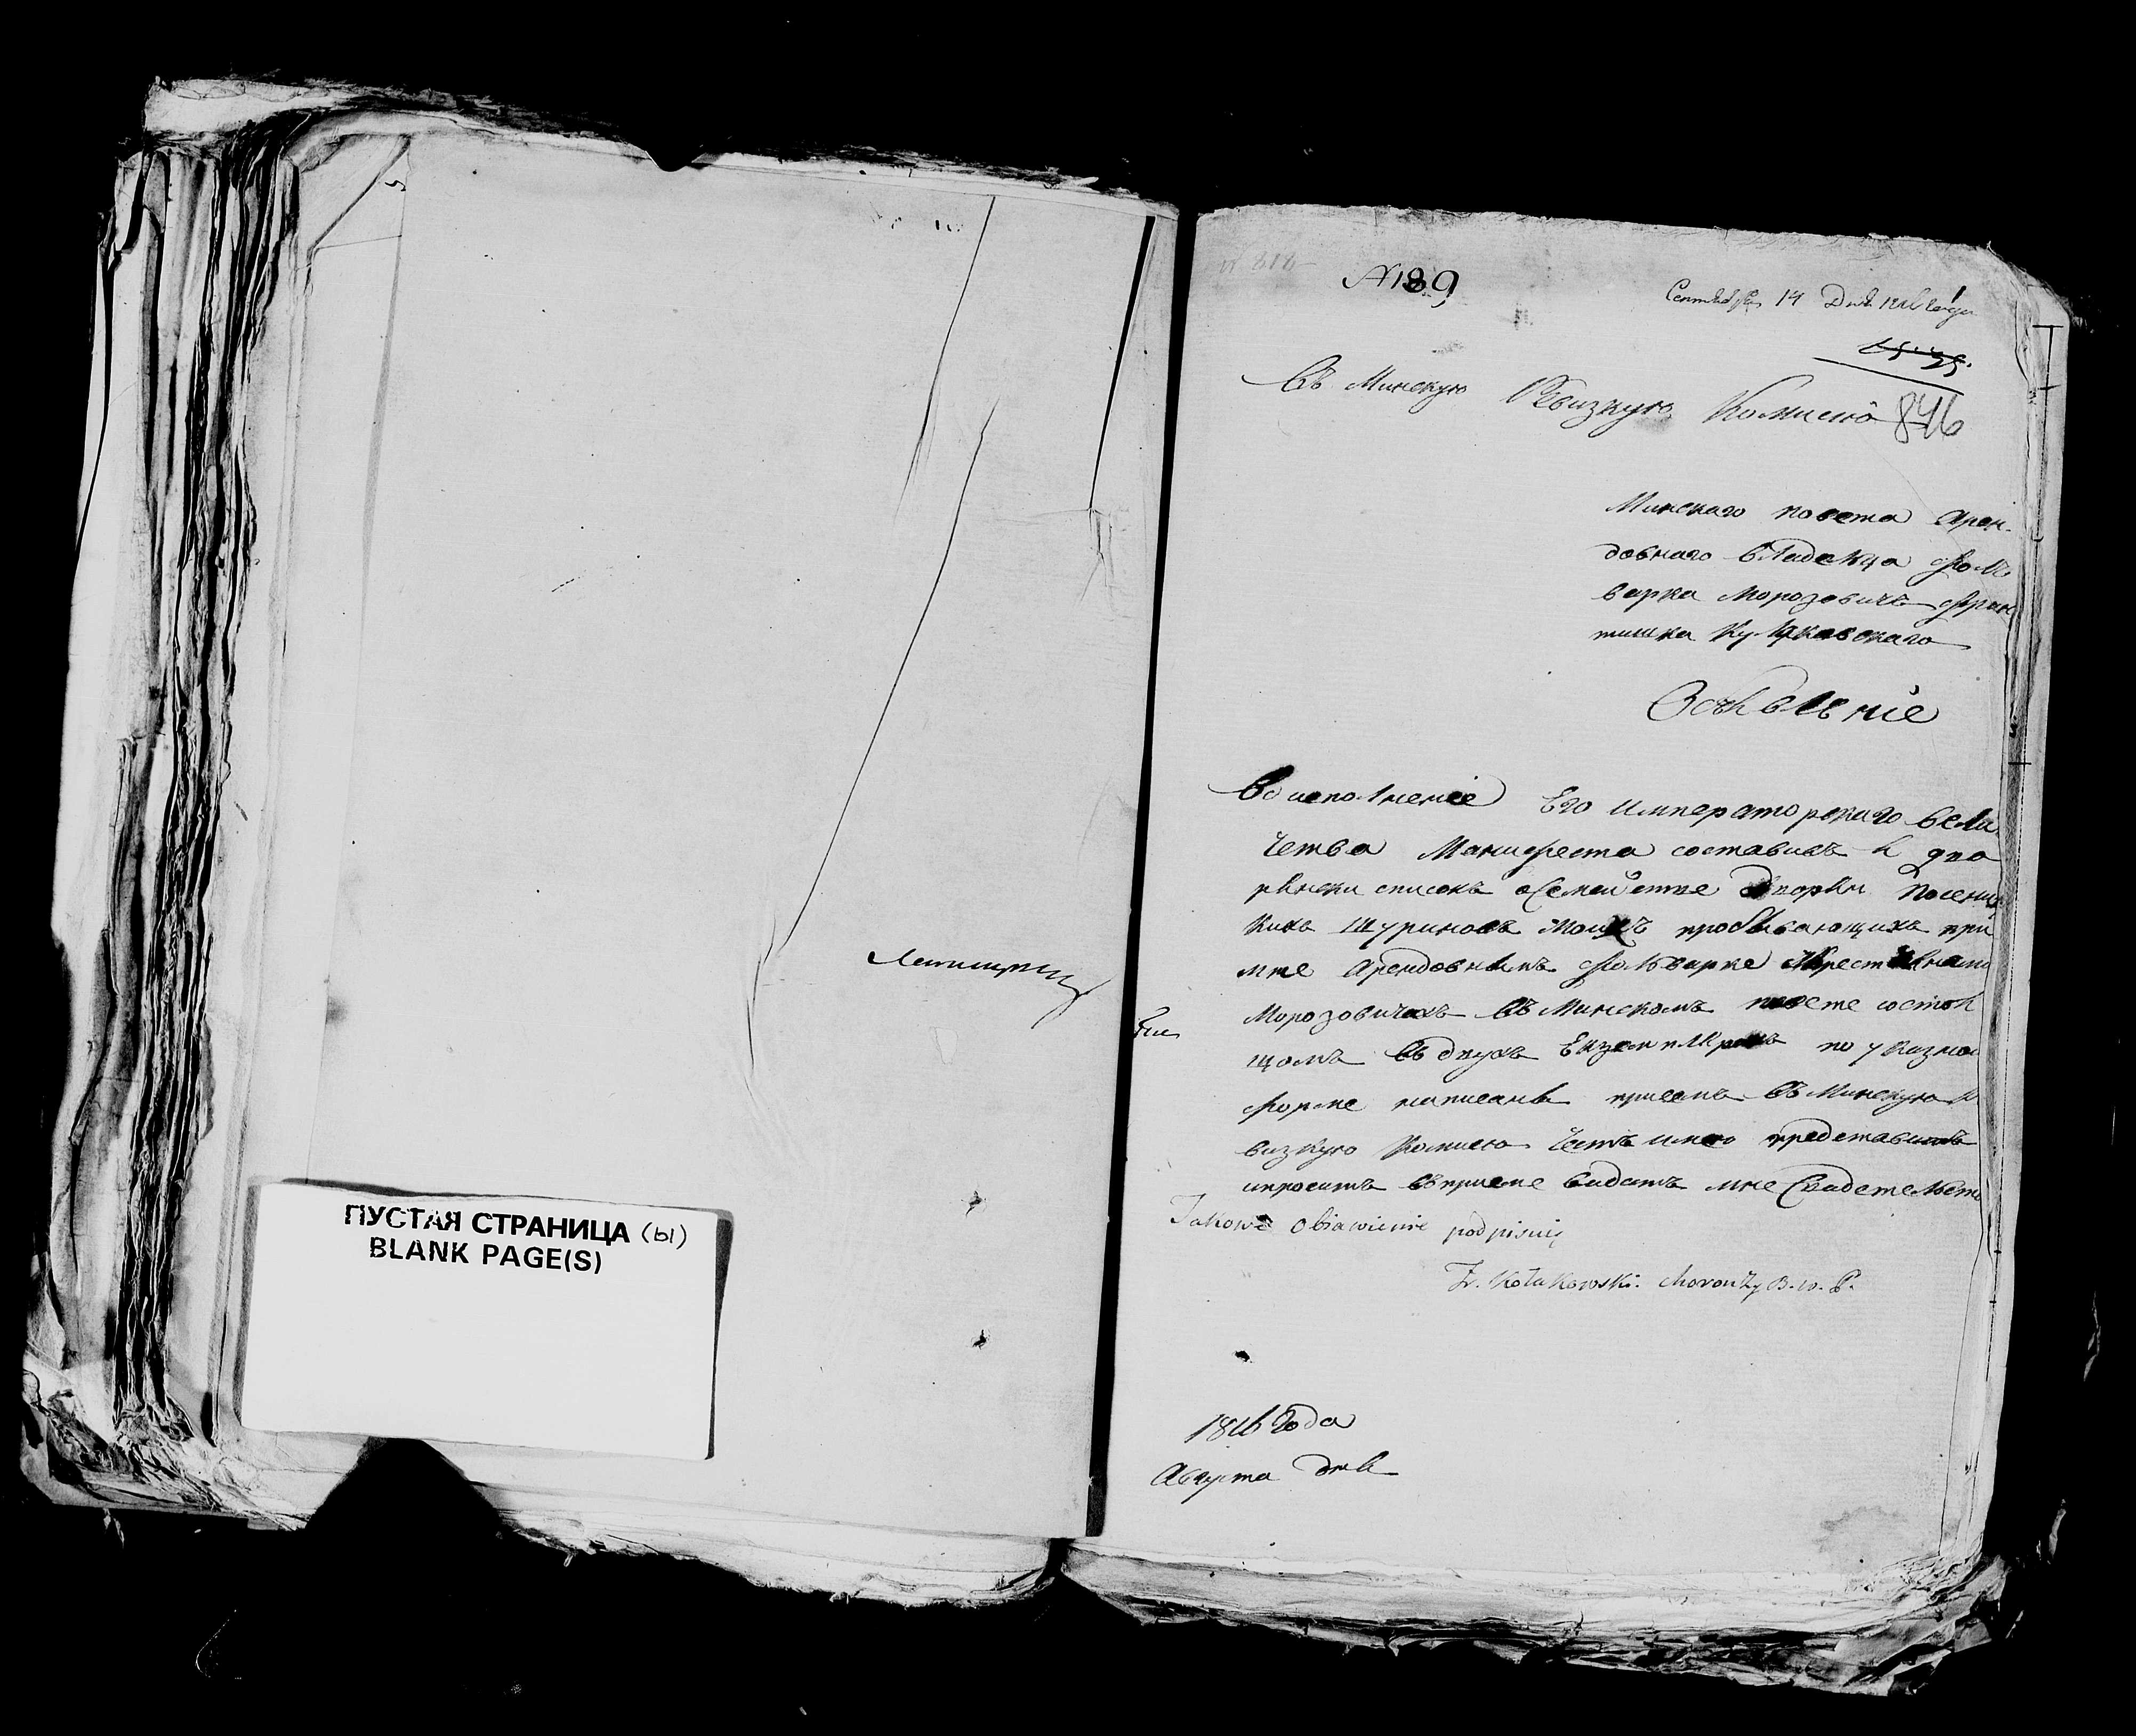 Летицкий
ПУСТАЯ СТРАНИЦА (ы)
BLANK PAGE(S)
N 818
N 189
Сентября 14 Дня 1816 года
846
Въ Минскую Ревизкую Комисию
Минскаго повета Арен-
довнаго владельца фоль
варка Морозовичь Фран
тишка Кулаковскаго
Объявленіе
Во исполненіе Его Императорскаго Вели
чества Манифеста составивъ я дво
рянски списокъ о Семействе Дворян
Шуриновъ Моихъ пробывающихъ при
мне Арендовнымъ фольварке
Морозовичахъ въ Минскомъ повете состоя
щомъ въ двухъ Екземплярахъ по указной
форме написаны присемъ въ Минскую Ре
визкую Комисию Честь имею представить
ипросить въ приеме видать мне Свидетельство
Takowe obiawienie podpisuię
Fr. Kołakowski. Chorąży B. W. P.
1816 Года
Августа дня